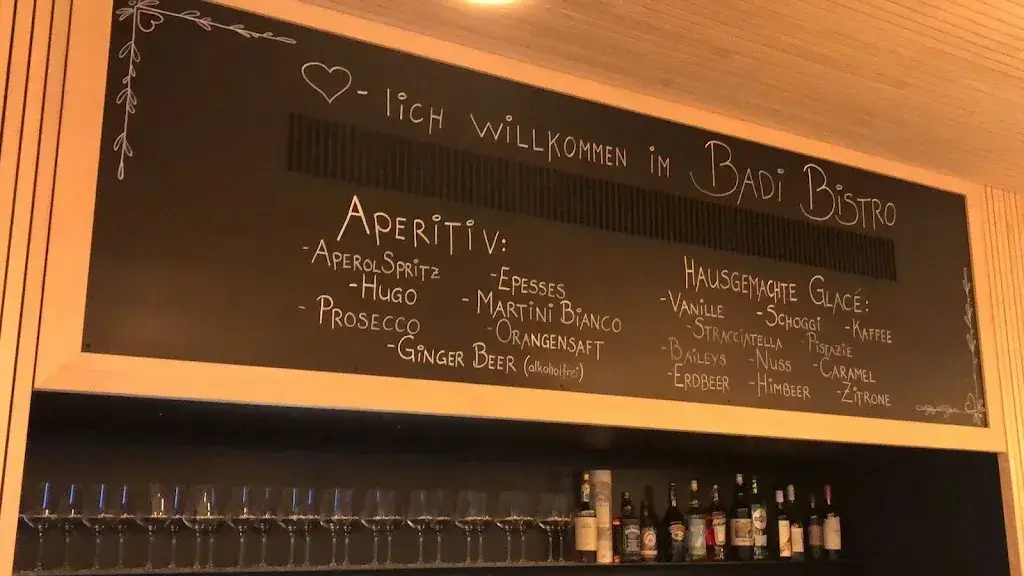 ♡-lich willkommen im Badi Bistro
Aperitiv:
-Aperol Spritz
-Hugo
-Prosecco
-Epesses
-Martini Bianco
-Orangensaft
-Ginger Beer (alkoholfrei)
Hausgemachte Glacé:
-Vanille -Schoggi -Kaffee
-Stracciatella -Pistazie
-Baileys -Nuss -Caramel
-Erdbeer -Himbeer -Zitrone